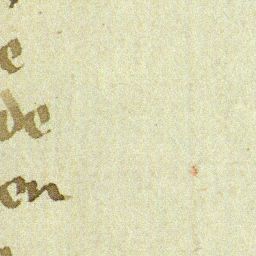 e
de
en